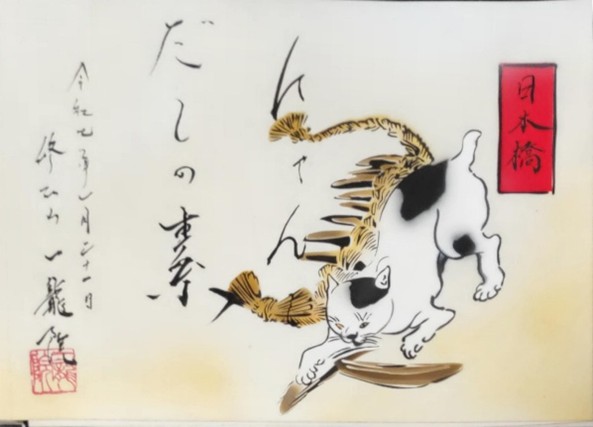 日本橋
にゃん
だしの素
令和七年月二十一日
一龍院